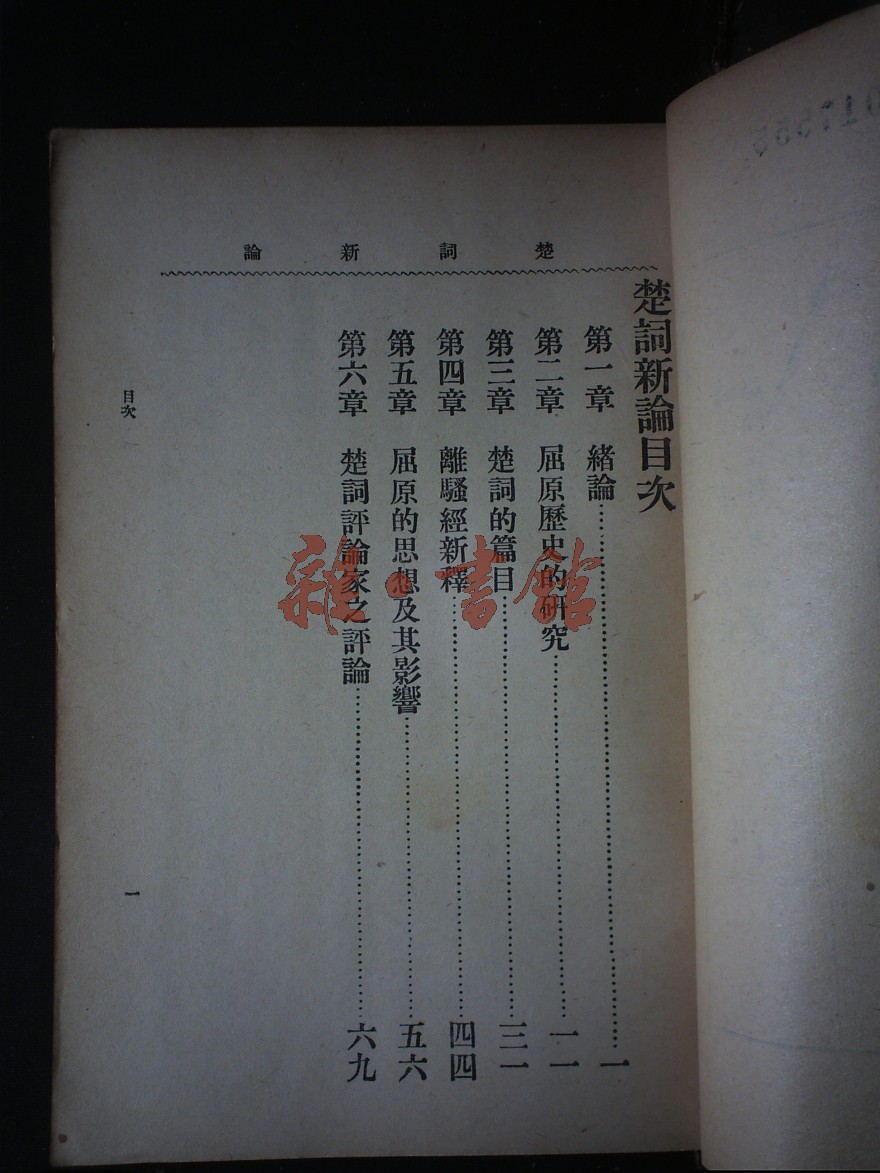 楚詞新論
楚詞新論目次
第一章 緒論……………………一
第二章 屈原歷史的研究……………………一一
第三章 楚詞的篇目……………………三一
第四章 離騷經新釋……………………四四
第五章 屈原的思想及其影響……………………五六
第六章 楚詞評論家之評論……………………六九
目次
一
雜·書館